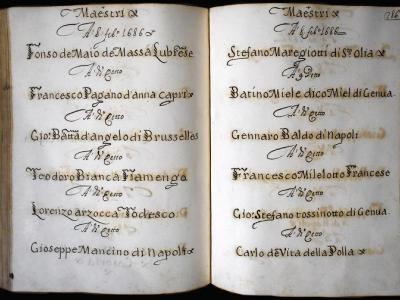 Maestri
A' 8 feb.º 1686
Fonso de Maio de Massa Lubrese
A' dì detto
Francesco Pagano d'anna capri
A' dì detto
Gio: Batta d'angelo di Brusselles
A' dì detto
Teodoro Bianca Fiamengo
A' dì detto
Lorenzo arzocca Todesco
A' dì detto
Gioseppe Mancino di Napoli
Maestri
Stefano Maregiotti di Sta Olia
A' dì detto
Batino Miele dico Miel di Genua
A' dì detto
Gennaro Baldo di Napoli
A' dì detto
Francesco Milelotto Francese
A' dì detto
Gio: Stefano rossinotto di Genua
A' dì detto
Carlo de Vita della Polla